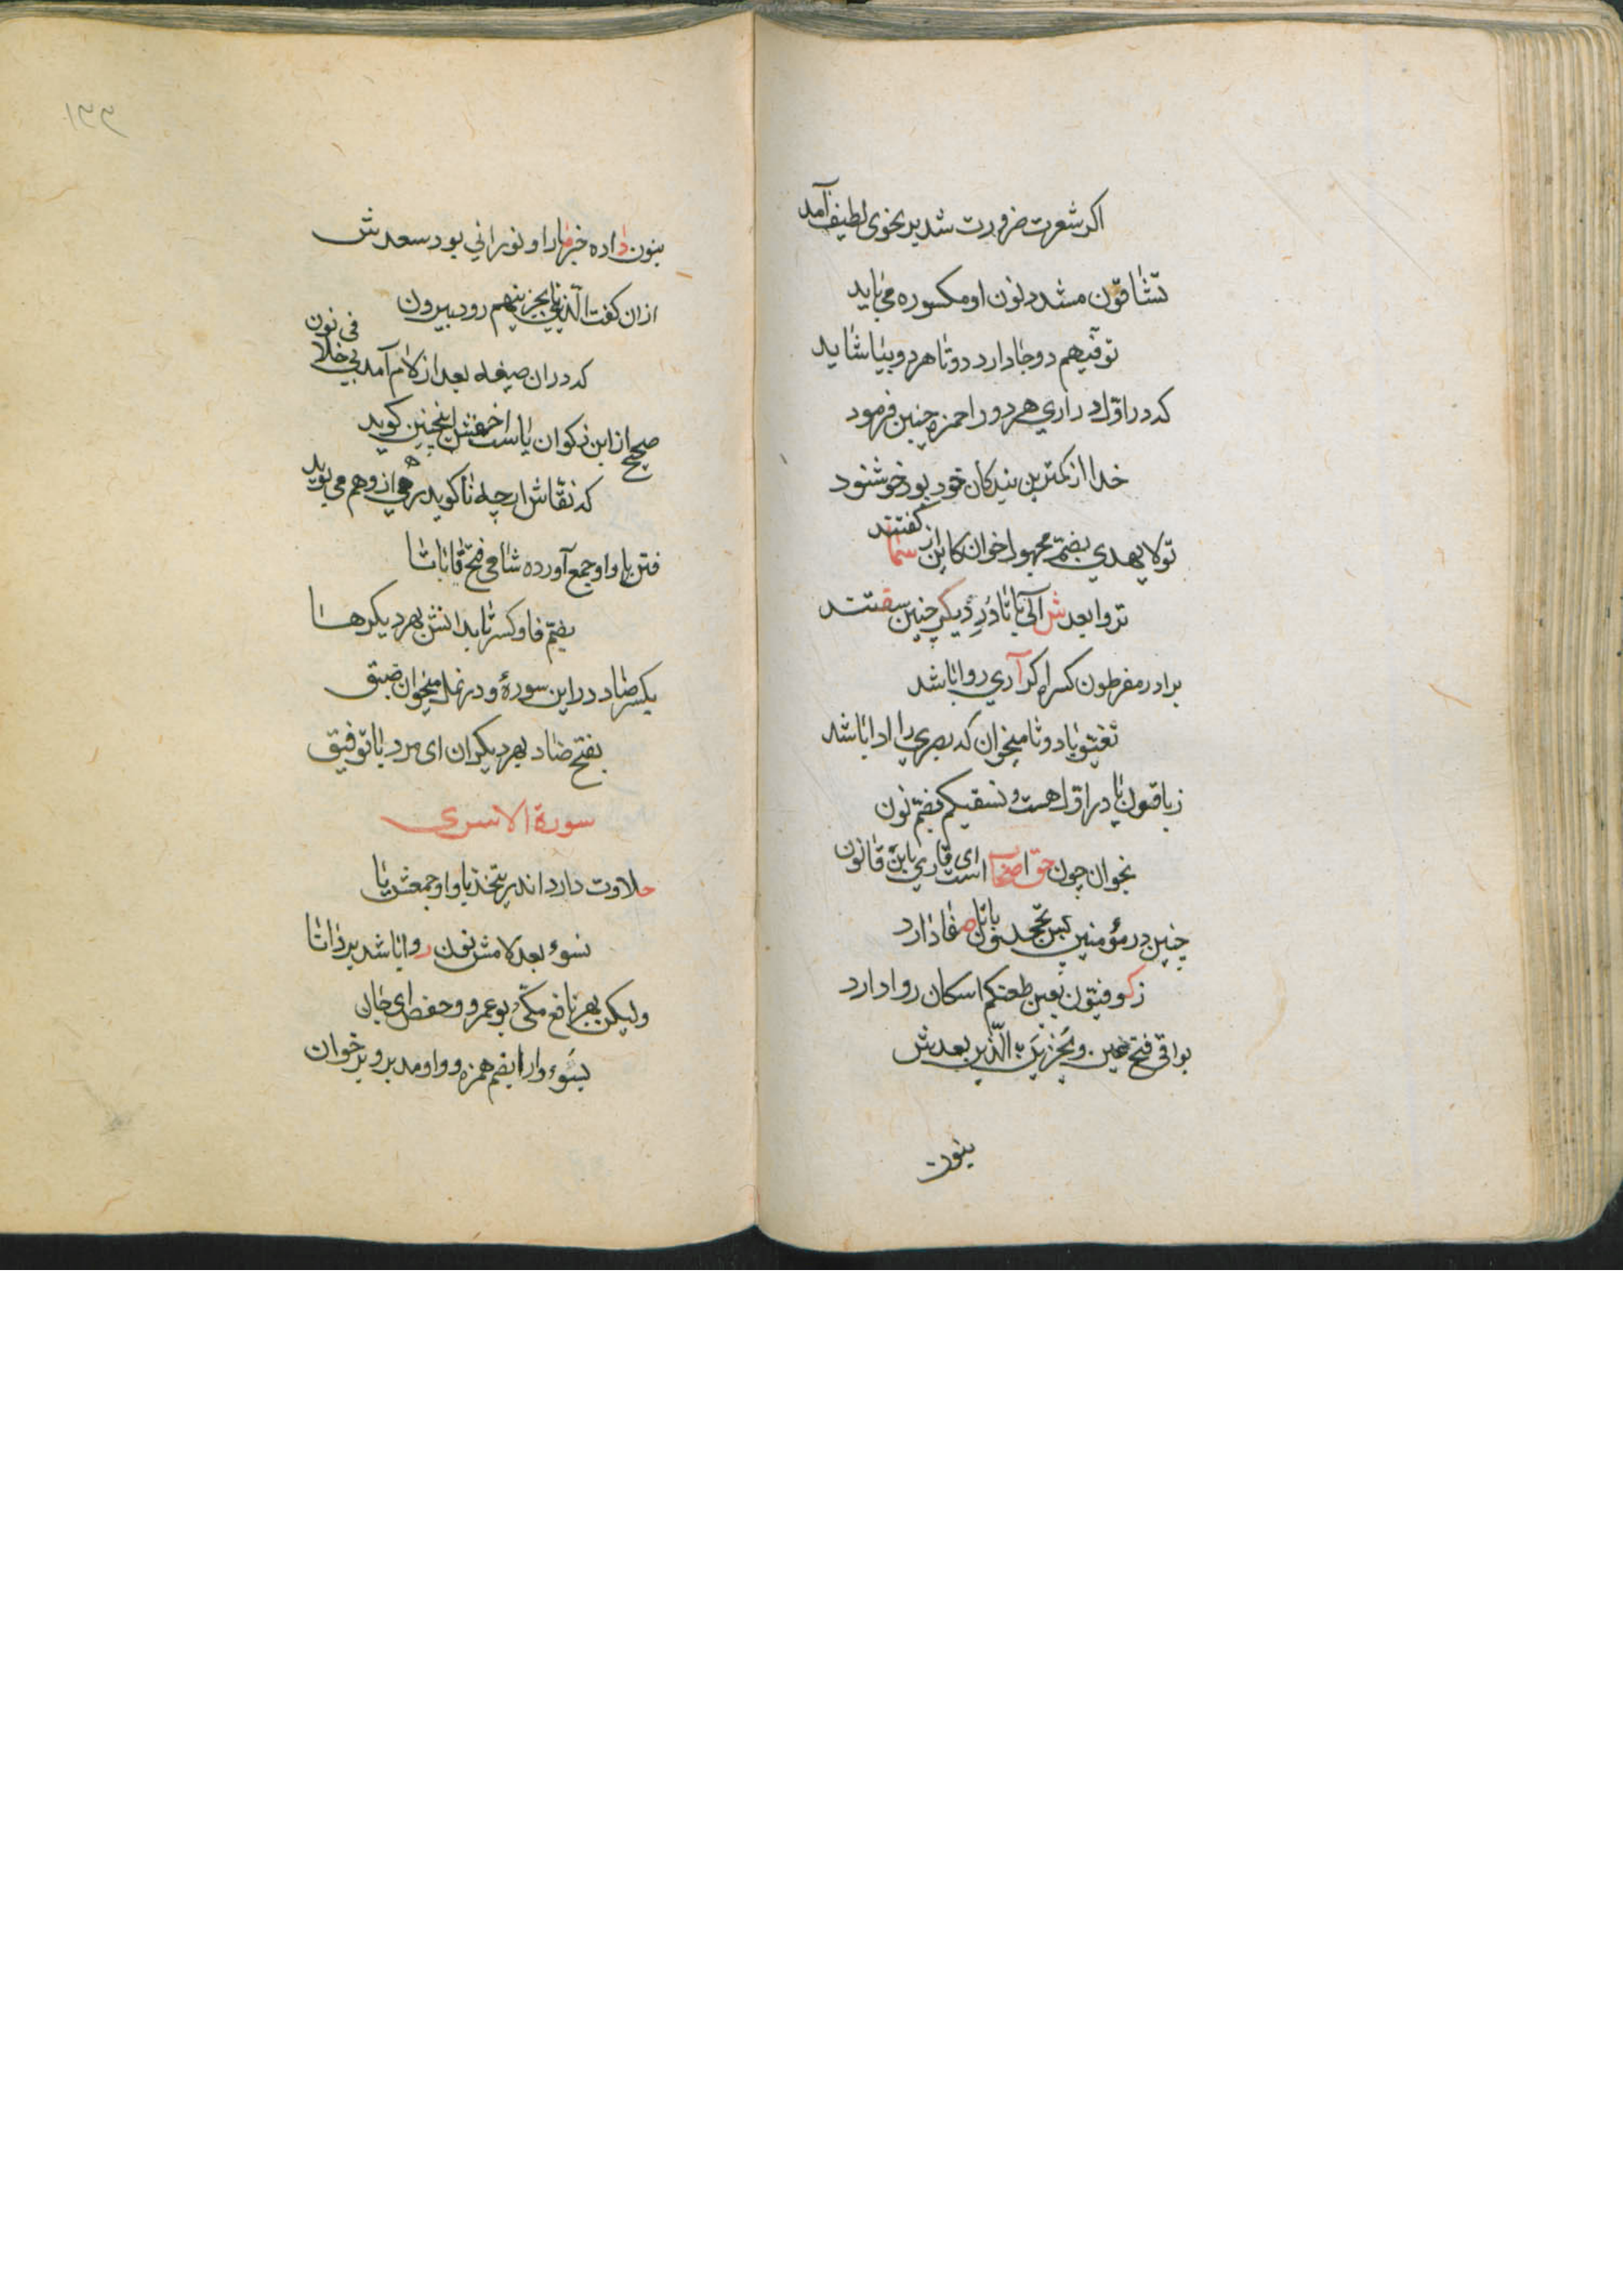 اکر شعرت ضرورت شد بر نحوی لطیف آمد
تشاقون مشدد نون او مکسوره می باید
توفیهم دو جا دارد دو تا هر دو بیا شاید
که در اول در آری هر دو را حمزه چنین فرمود
خدا از کمترین بندکان خود بود خوشنود
تو لا یهدی بضم مجهول خوان کاین از سما کفتند
تروا بعدش الی با تا در دیکر چنین سفتند
برادر مفرطون کسر را کر آری روا باشد
تفیئو با دو تا میخوان که بصری را ادا باشد
زیاقون یا در اول هست و نسقیکم بضم نون
بخوان چون حق اصحاب است ای قاری باین قانون
چنین در مؤمنین پس تجحدون با تا صفا دارد
زکوفیون بعین ظعنکم اسکان روا دارد
بواقی فتح عین و نجزین به الذین بعدش
بنون
۱۳۳
بنون داده خبر ما را و نورانی بود سعدش
ازان کفت الذین تا نجزینهم رود بیرون
که دران صیغه بعد از لام آمد بی خلافی نون
صحیح از ابن ذکوان یاست اخفش اینچنین کوید
که نقاش ارچه نا کوید ولی از وهم می پوید
فتن با واو جمع آورده شامی فتح فا با تا
بضم فا و کسر تا بدانش بهر دیکرها
بکسر ضاد در این سوره و در نمل میخوان ضیق
بفتح ضاد بهر دیکران ای مرد با توفیق
سورة الاسری
حلاوت دارد اندر یتخذ با واو جمعش یا
نسوء بعد لامش نون روا باشد بر دانا
ولیکن بهر نافع مکی و بو عمرو و حفص ای جان
یسوء وا را بضم همزه و واو مد بر وی خوان